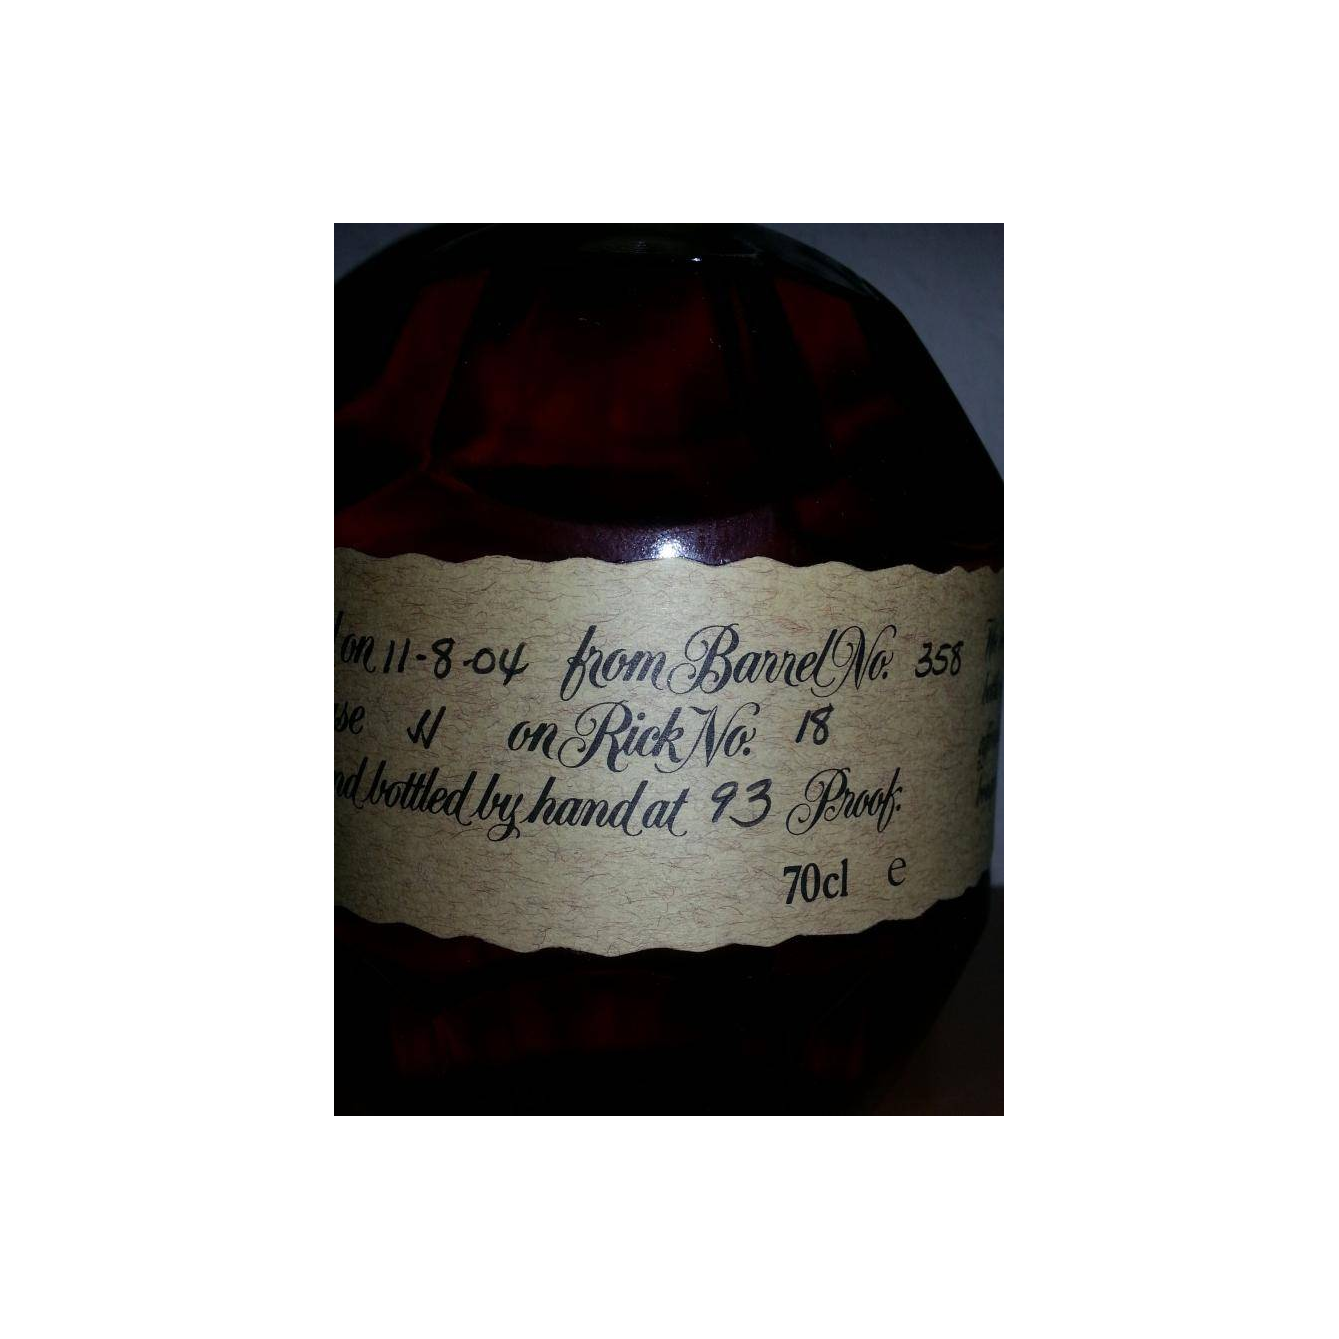 on 11-8-04 from Barrel No. 358
on Rick No. 18
bottled by hand at 93 Proof.
70cl e